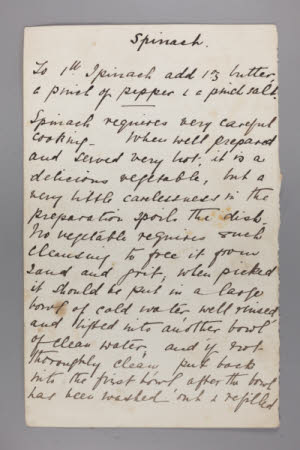 Spinach.
To 1lb Spinach add 1oz butter,
a pinch of pepper & a pinch salt.
Spinach requires very careful
cooking - When well prepared
and served very hot, it is a
delicious vegetable, but a
very little carelessness in the
preparation spoils the dish.
No vegetable requires such
cleansing to free it from
sand and grit, when picked
it should be put in a large
bowl of cold water, well rinsed
and lifted into another bowl
of clean water, and if not
thoroughly clean, put back
into the first bowl after the bowl
has been washed out & refilled